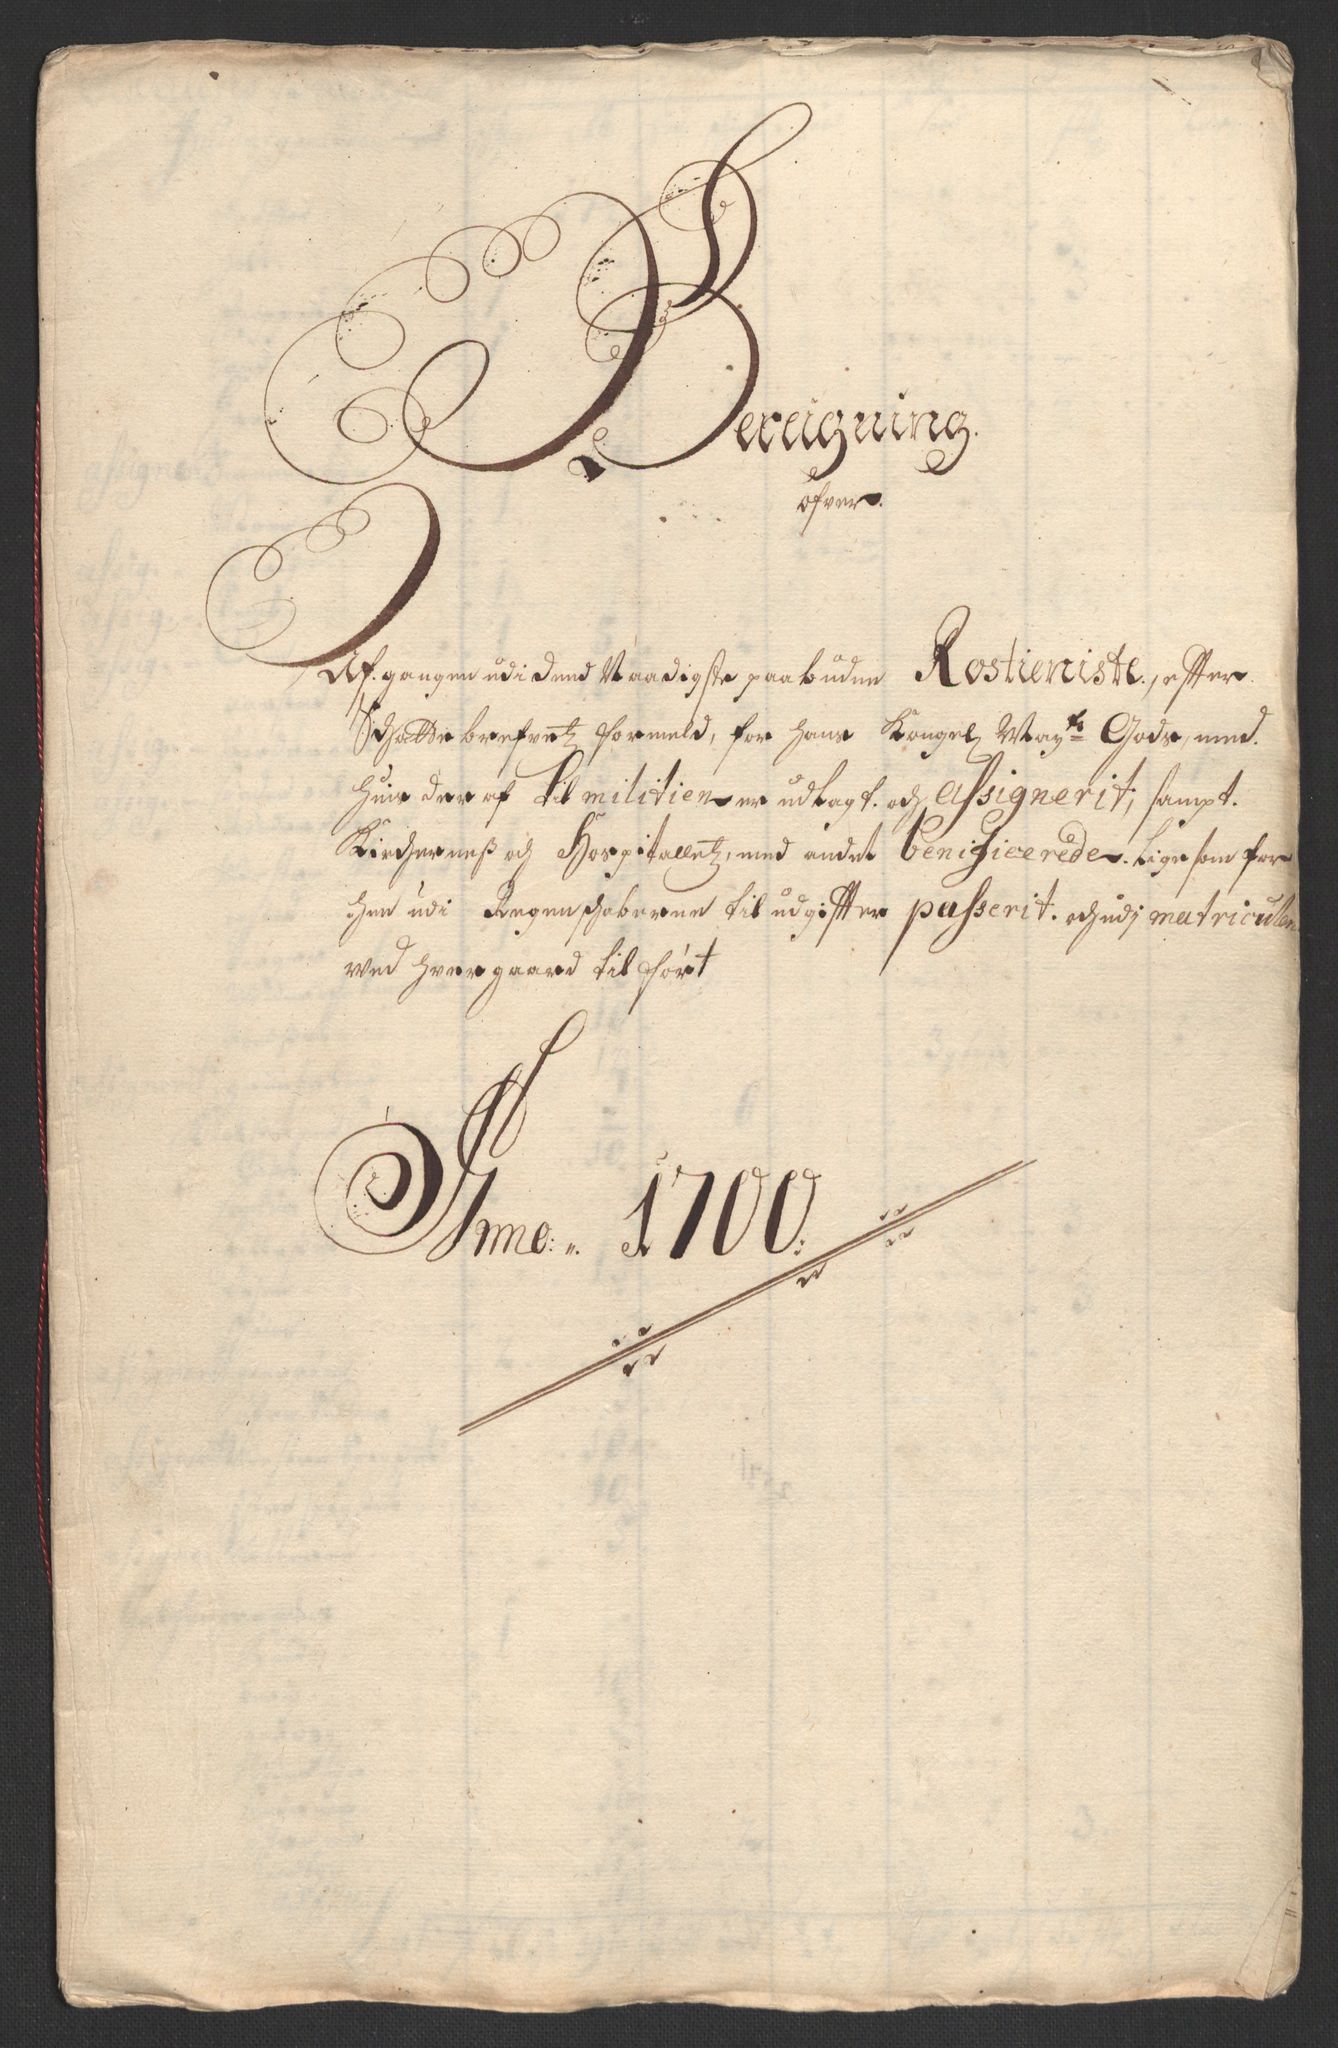 Bereigning
ofver
Afgangen udi dend Naadigste paabuden Rostieniste, effter
Schattebrefvetz formeld, for hans Kongel May.ts Gods, med
huis der af til militien er udlagt och assignerit, sampt
Kircherneß och Hospitalletz, med andet benificerede, lige som for
hen udi Regenschaberne til udgifft er passerit. och udj matriculen
ved hver gaard til ført
Anno 1700